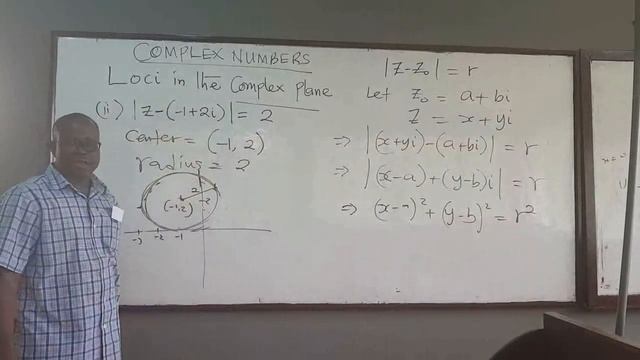 COMPLEX NUMBERS
Loci in the Complex plane
(ii) |z-(-1+2i)| = 2
Center = (-1, 2)
radius = 2
2
(-1,2)
2
-3 -2 -1
|z-z₀| = r
Let z₀ = a+bi
z = x+yi
⇒ |(x+yi)-(a+bi)| = r
⇒ |(x-a)+(y-b)i| = r
⇒ (x-a)²+(y-b)² = r²